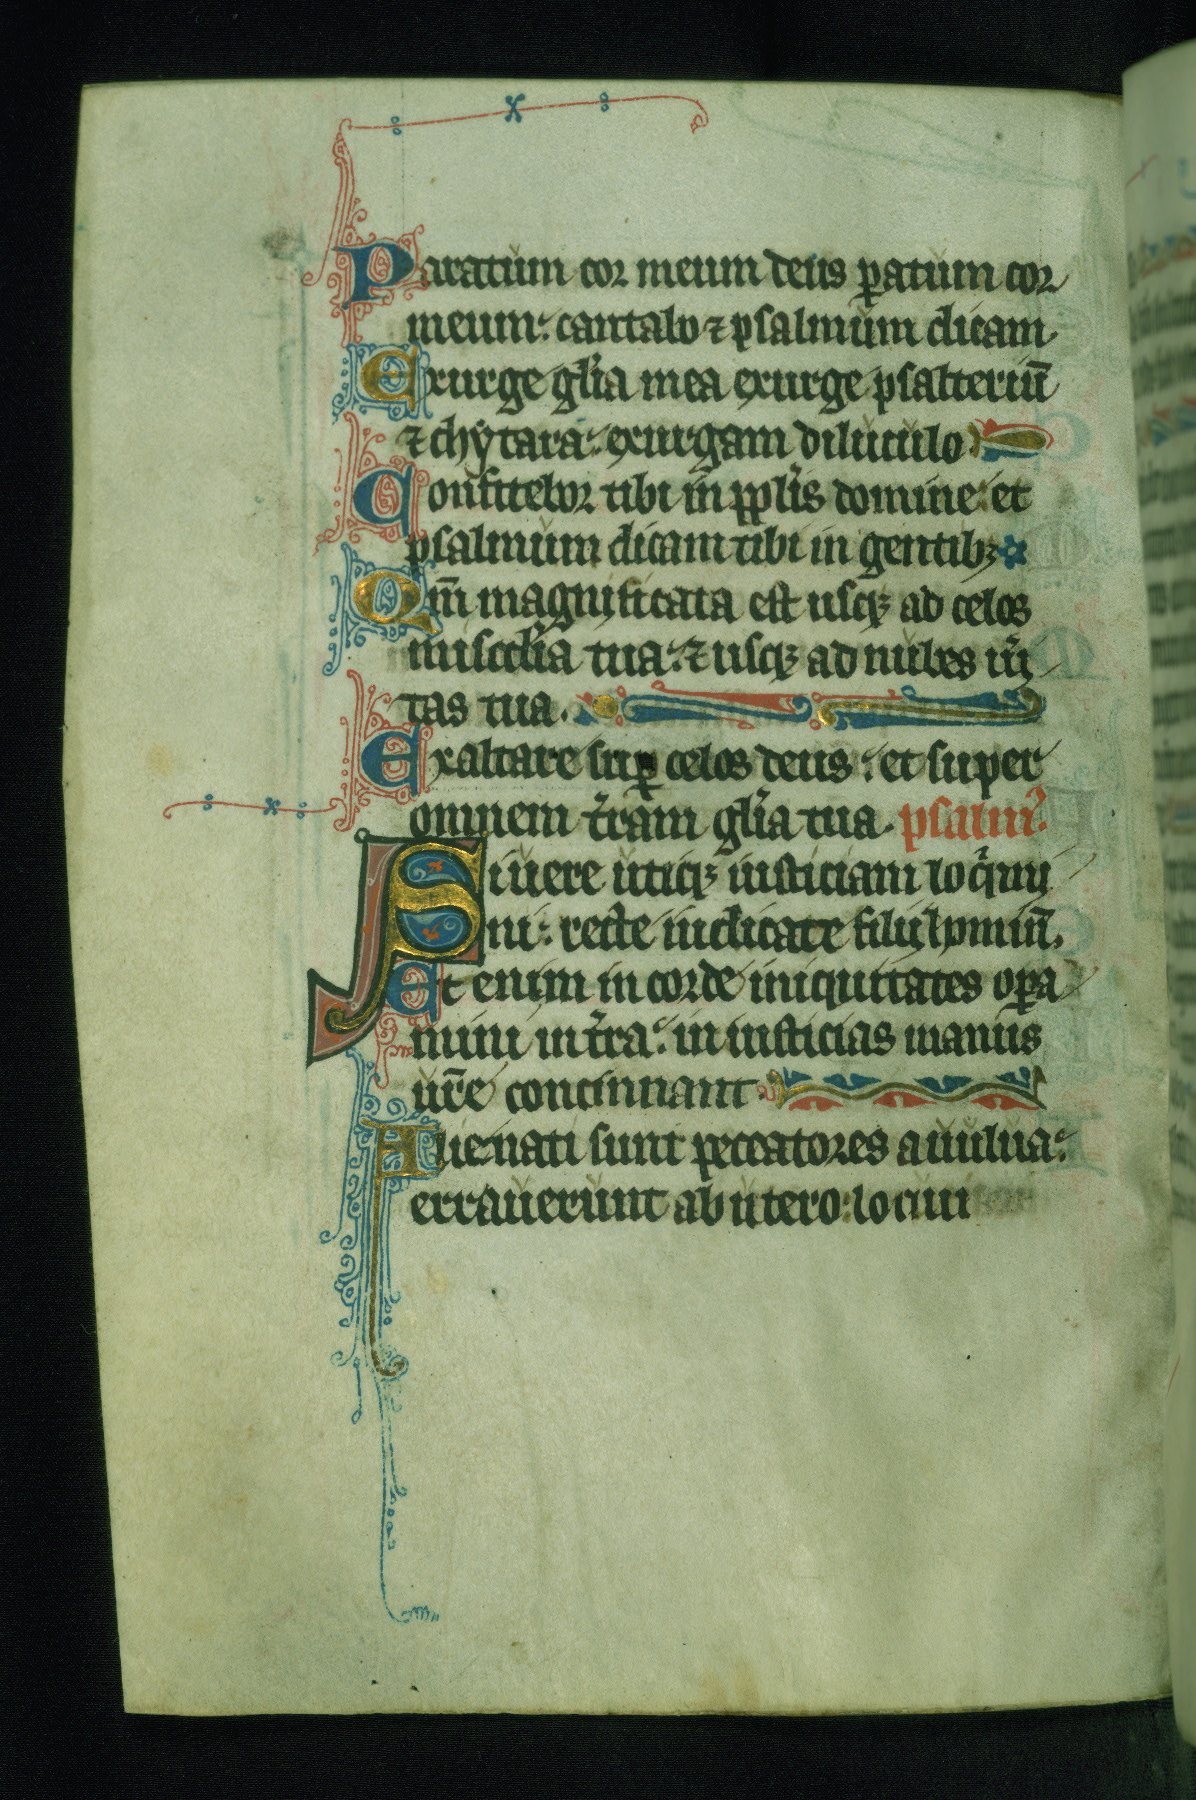 Paratum cor meum deus ꝑatum cor
meum: cantabo ⁊ psalmum dicam
Exurge gl̃ia mea exurge psalteriũ
⁊ chytara: exurgam diluculo.
Confitebor tibi in ppl̃is domine: et
psalmum dicam tibi in gentibꝫ
Qm̃ magnificata est usqꝫ ad celos
misc̃dia tua: ⁊ usqꝫ ad nubes ũi
tas tua.
Exaltare suꝑ celos deus: et super
omnem t̃ram gl̃ia tua. psalm᷒.
Si uere utiqꝫ iusticiam loq̃mi
ni: recte iudicate filij homin̄.
Et enim in corde iniquitates oꝑa
mini in t̃ra: in iusticias manus
ur̃e concinnant.
Alienati sunt peccatores a uulua:
errauerunt ab utero: locuti